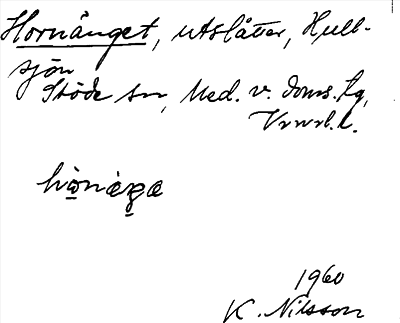 Hornänget, utslåtter, Hull-
sjön
Stöde sn, Med. v. doms. tg,
Vnrl. l.
1960
K. Nilsson